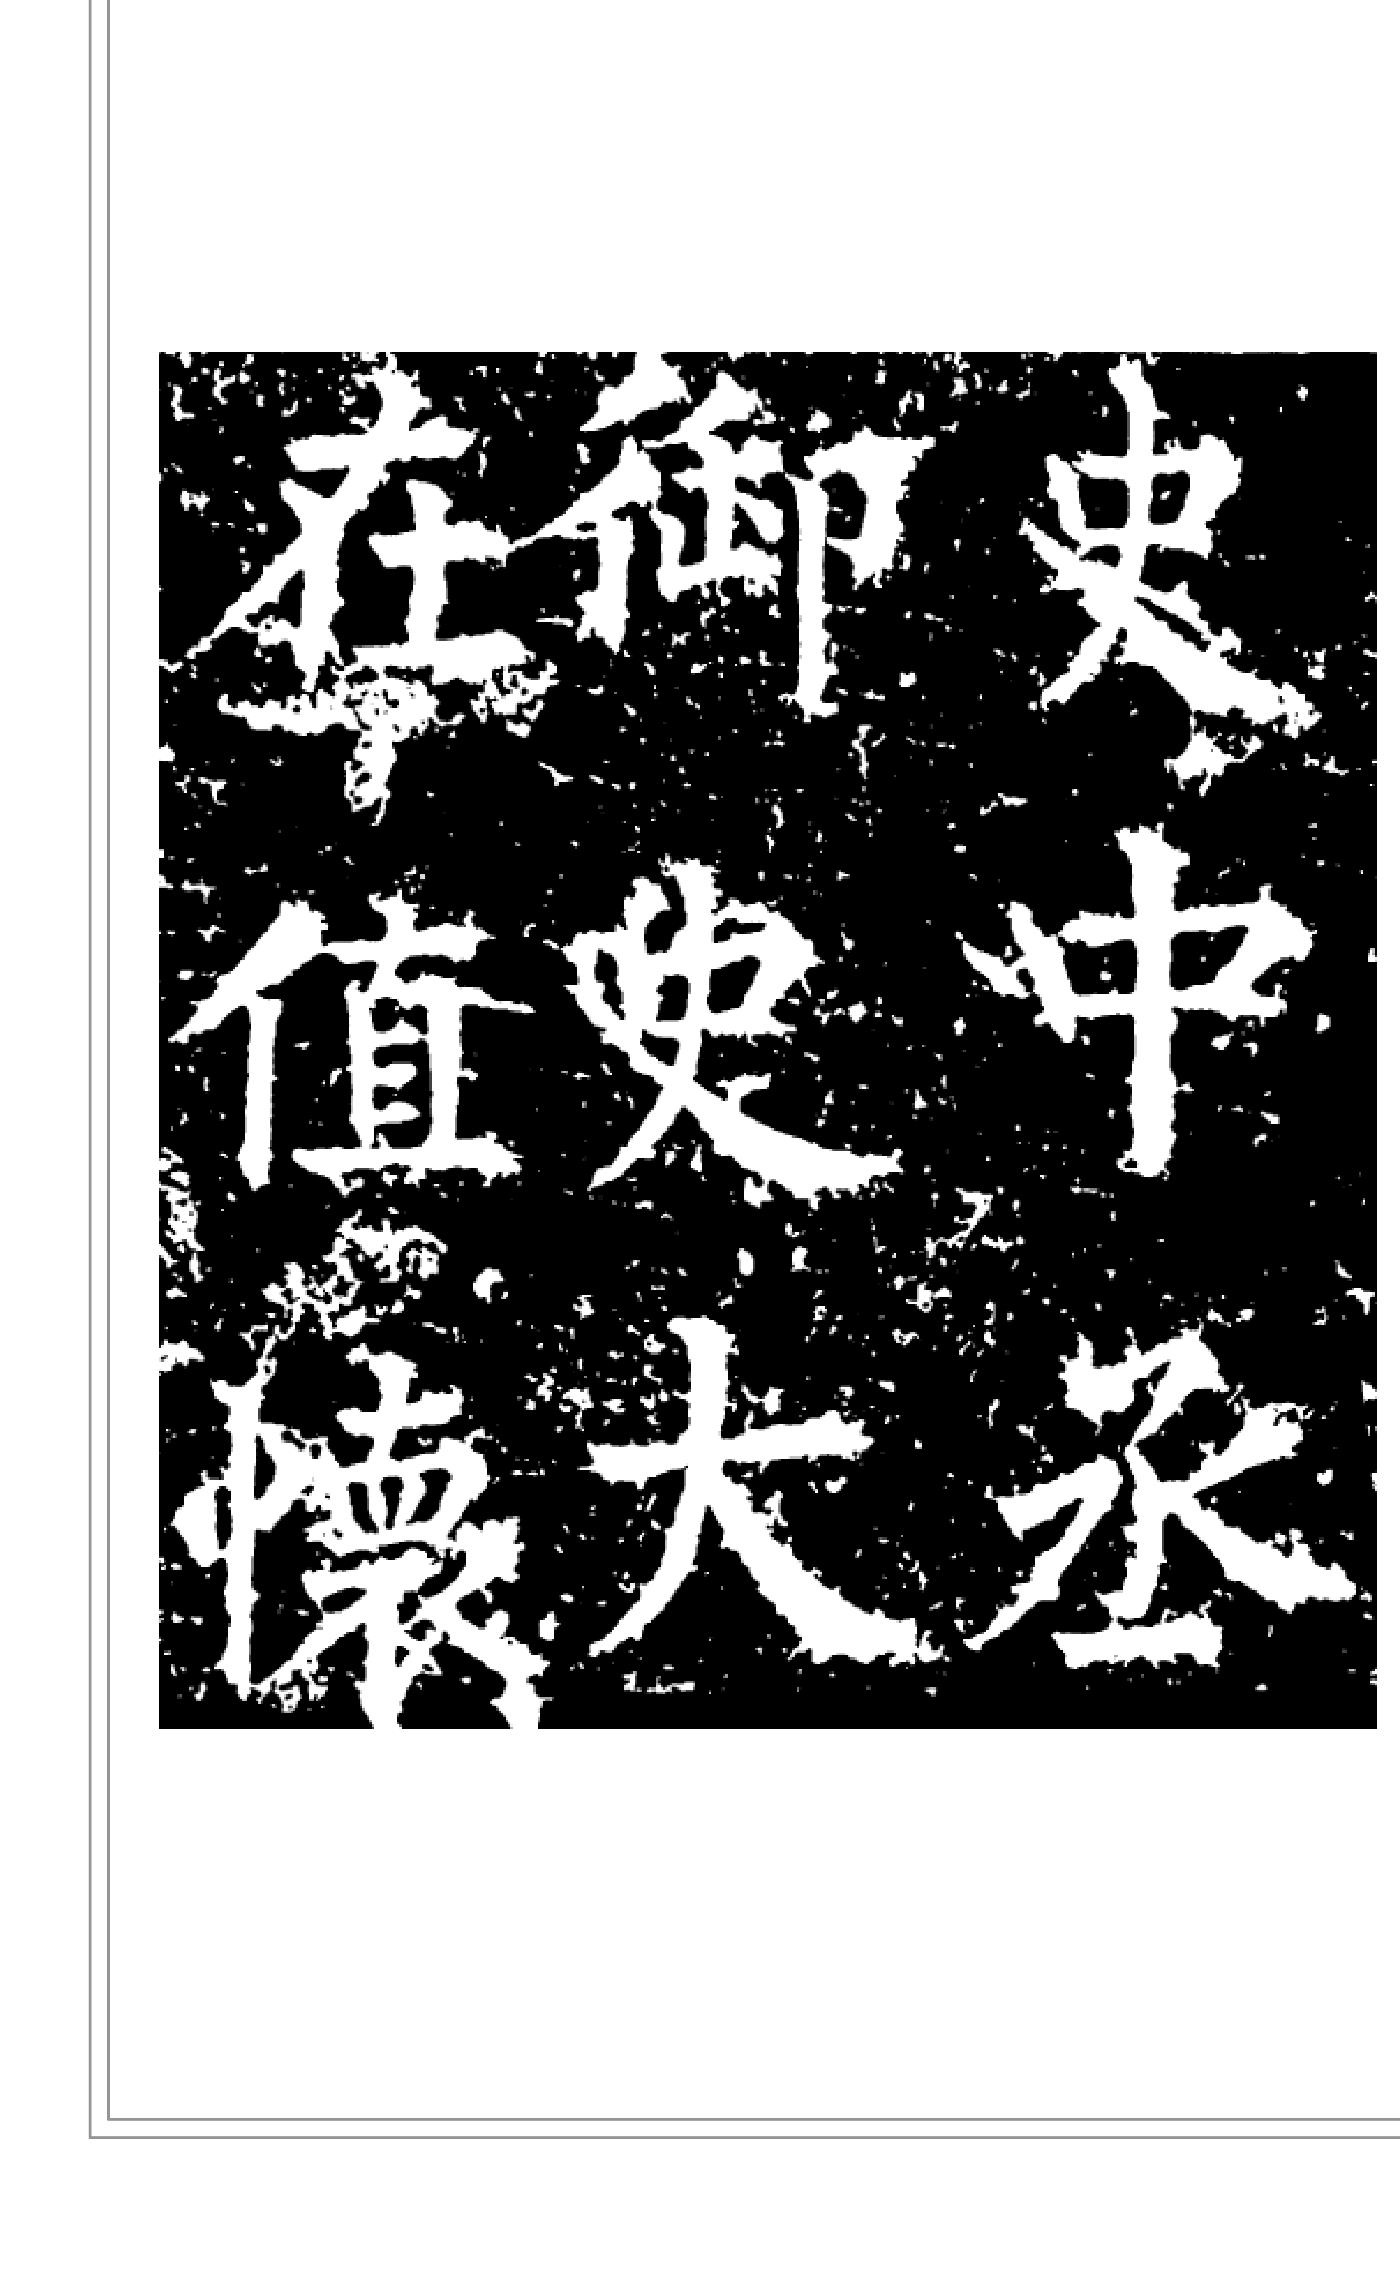 史中丞
御史大
在值懷